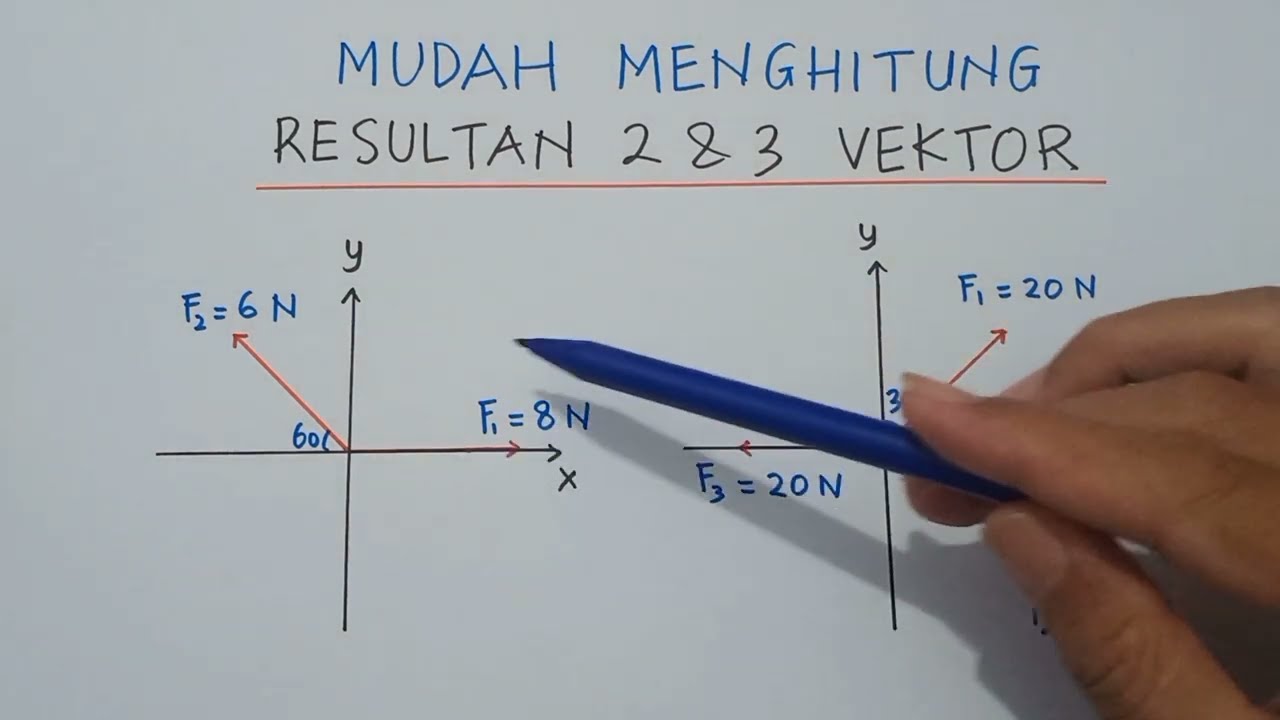 MUDAH MENGHITUNG
RESULTAN 2 & 3 VEKTOR
y
F₂ = 6 N
60
F₁ = 8 N
x
y
F₁ = 20 N
3
F₃ = 20 N